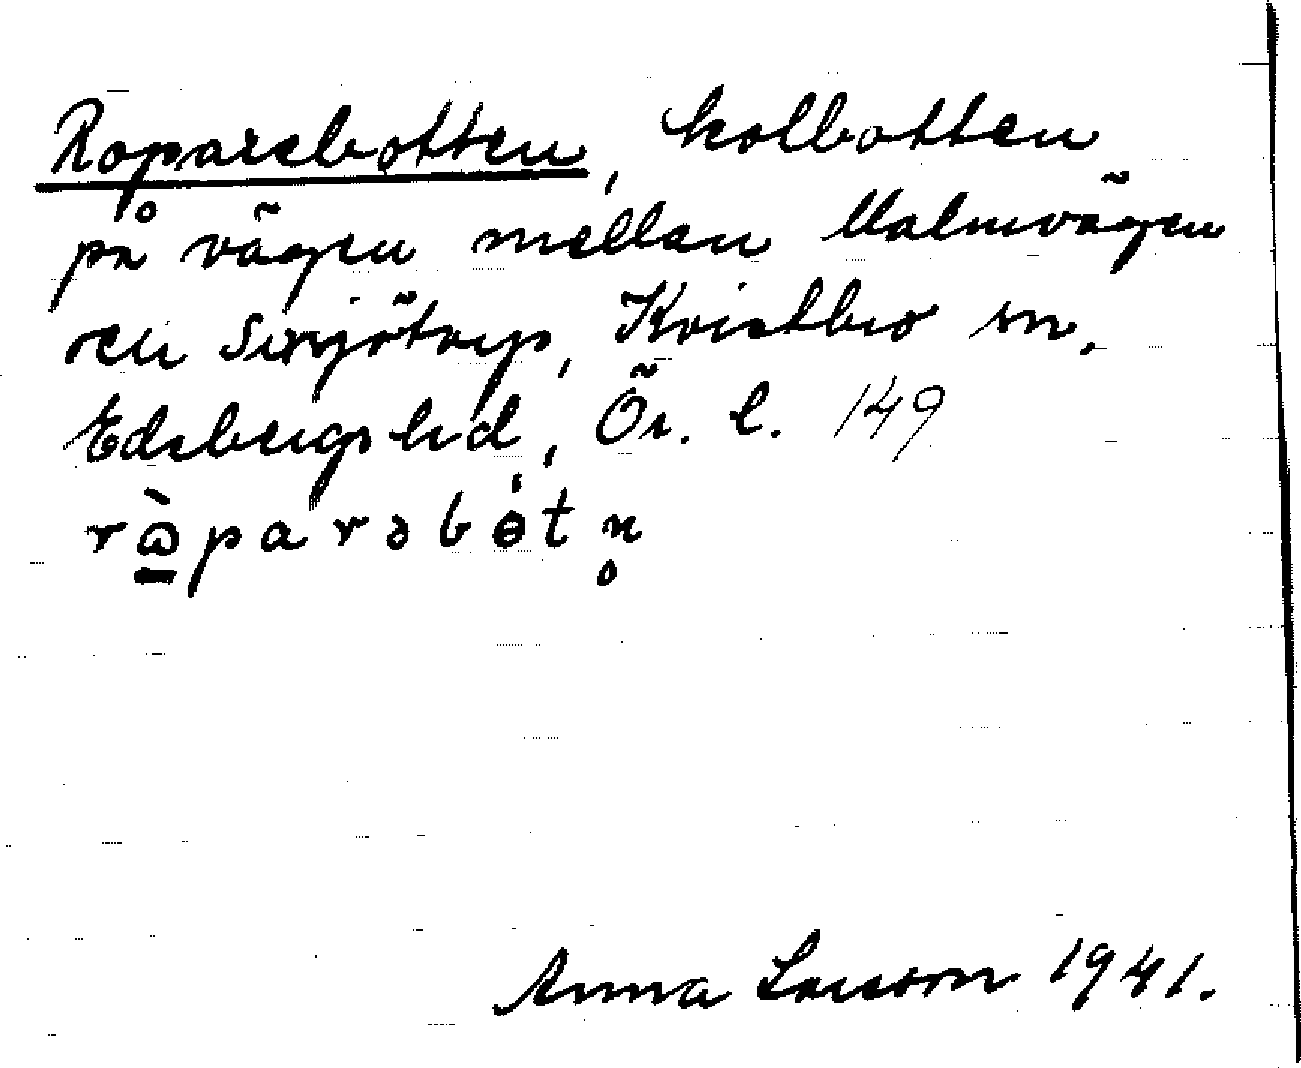 Roparebotten, kolbotten
på vägen mellan Malmvägen
och Sirsjötorp, Kvistbro sn,
Edsbergs hd, Ör. l. 149
rɷ̀parəbòtn̥
Anna Larsson 1941.